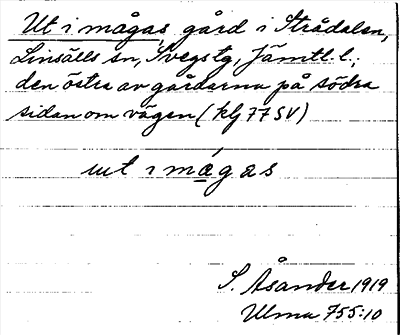 Ut i mågas gård i Strådalen,
Linsälls sn, Svegs tg, Jämtl. l.;
den östra av gårdarna på södra
sidan om vägen (klj 77 SV)
ut i mágas
S. Åsander 1919
Ulma 755:10